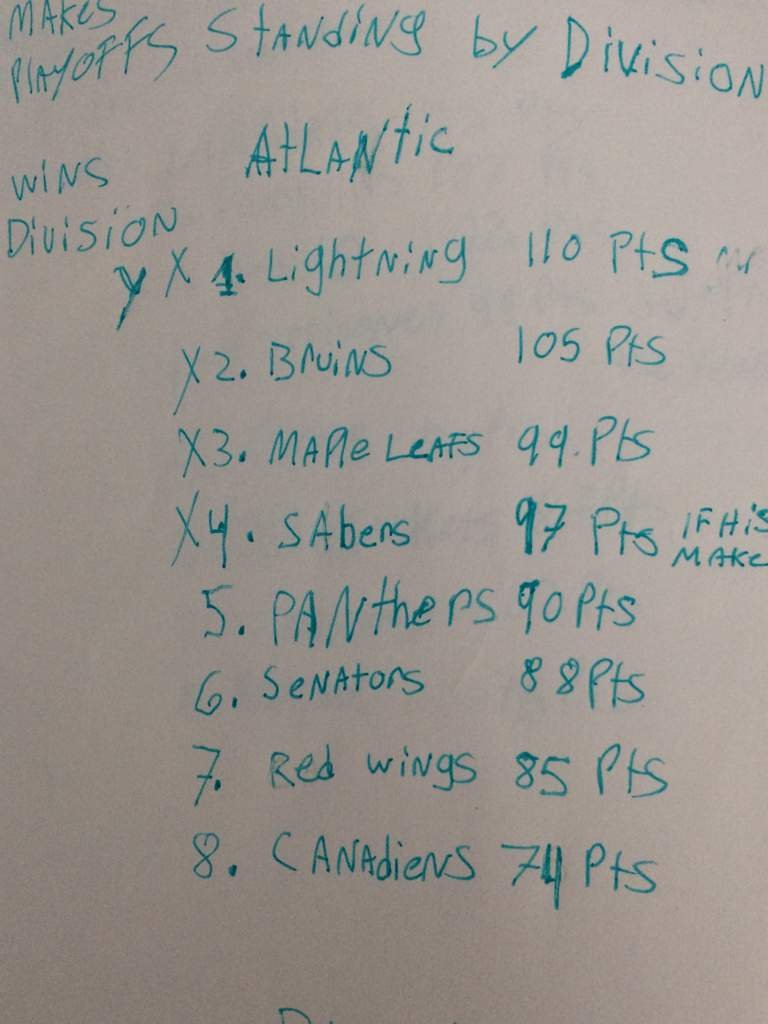 MAKES
PLAYOFFS Standing by Division
AtLANtic
WINS
Division
y X 1. Lightning 110 Pts
X2. Bruins 105 Pts
X3. MAPle LeAFS 99. Pts
X4. SAbers 97 Pts IF HiS
MAKE
5. PANthers 90 Pts
6. SeNAtors 88 Pts
7. Red wings 85 Pts
8. CANAdieNS 74 Pts